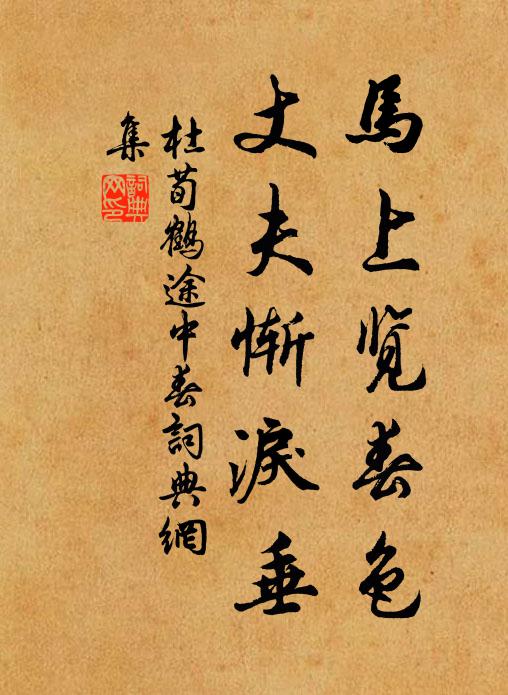 馬上覽春色
丈夫慚淚垂
杜荀鶴途中春詞典網
集
詞典
网印